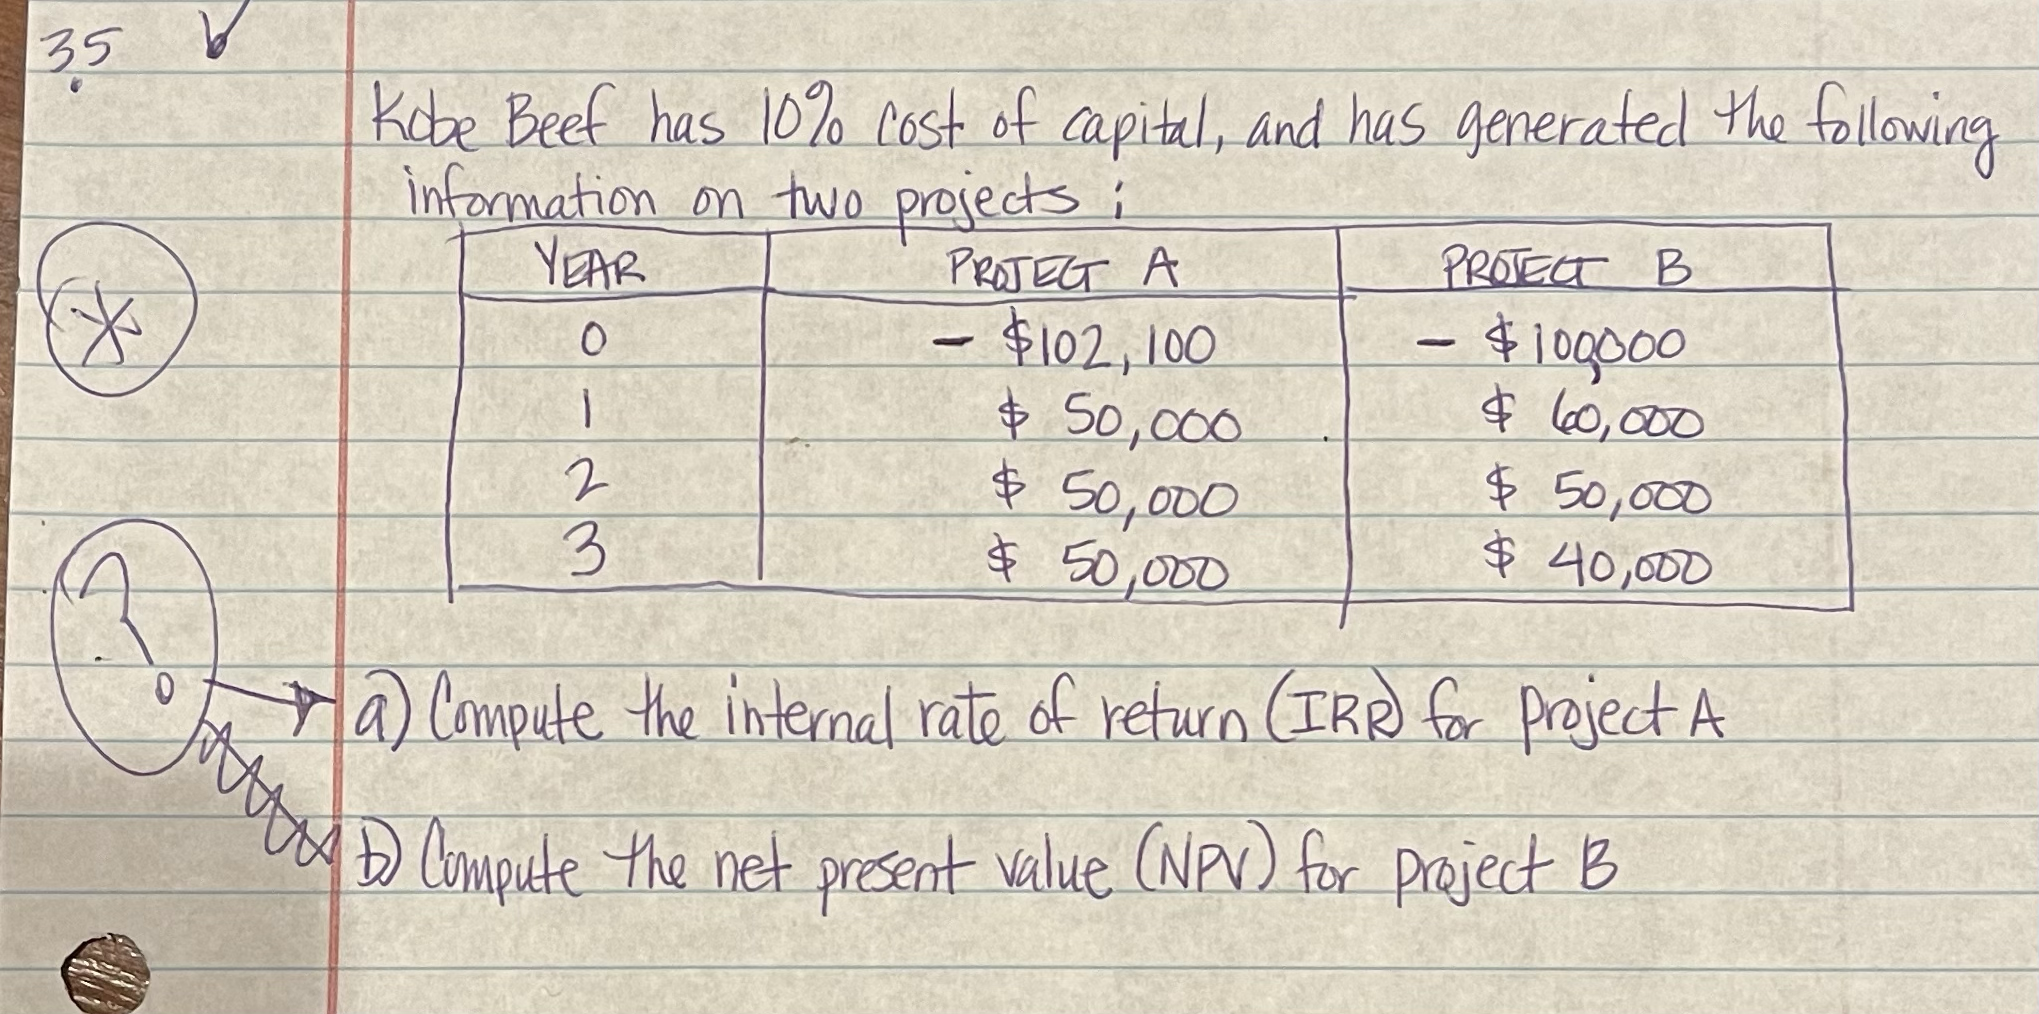 35
Kobe Beef has 10% cost of capital, and has generated the following
information on two projects:
YEAR PROJECT A PROJECT B
0 - $102,100 - $100,000
1 $ 50,000 $ 60,000
2 $ 50,000 $ 50,000
3 $ 50,000 $ 40,000
? a) Compute the internal rate of return (IRR) for project A
b) Compute the net present value (NPV) for project B